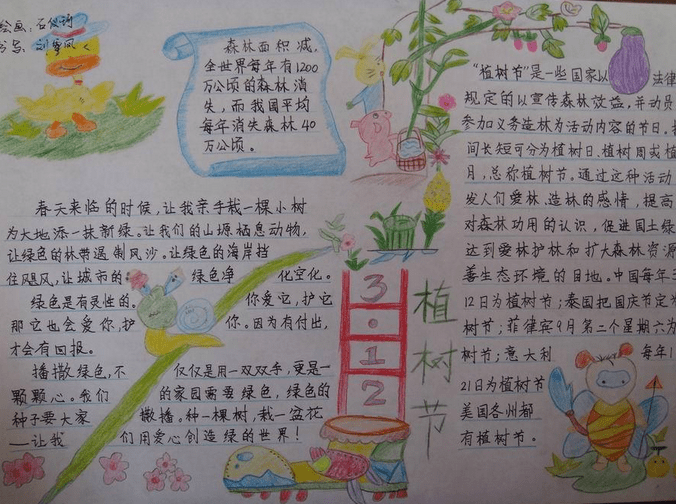 绘画：
森林面积减，
全世界每年有1200
万公顷的森林消
失，而我国平均
每年消失森林40
万公顷。
春天来临的时候，让我亲手栽一棵小树
为大地添一抹新绿。让我们的山塬栖息动物，
让绿色的林带遏制风沙。让绿色的海岸挡
住飓风，让城市的绿色净化空化。
绿色是有灵性的。你爱它，护它
那它也会爱你，护你。因为有付出，
才会有回报。
播撒绿色，不仅仅是用一双双手，更是一
颗颗心。我们的家园需要绿色，绿色的
种子要大家撒播。种一棵树，栽一盆花
——让我们用爱心创造绿的世界！
3·12
植树节
“植树节”是一些国家以法律
规定的以宣传森林效益，并动员
参加义务造林为活动内容的节日。
间长短可分为植树日、植树周或植
月，总称植树节。通过这种活动
发人们爱林、造林的感情，提高
对森林功用的认识，促进国土绿
达到爱林护林和扩大森林资源
善生态环境的目地。中国每年3
12日为植树节；泰国把国庆节定为
树节；菲律宾9月第二个星期六为
树节；意大利每年1
21日为植树节
美国各州都
有植树节。